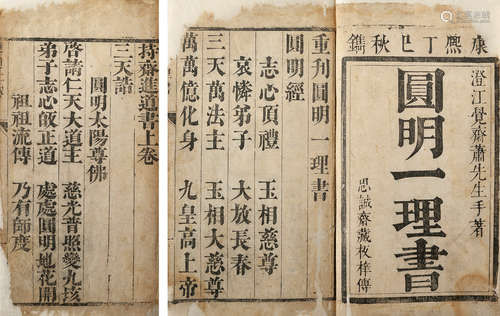 康熙丁巳秋鐫
澄江覺齋蕭先生手著
圓明一理書
思誠齋藏板梓傳
重刊圓明一理書
圓明經
志心頂禮 玉相慈尊
哀憐弟子 大放長春
三天萬法主 玉相大慈尊
萬萬億化身 九皇高上帝
持齋進道書上卷
三天請
圓明太陽尊佛
啓請仁天大道王 慈光普照變九垓
弟子志心皈正道 處處圓明地花開
祖祖流傳 乃有師度